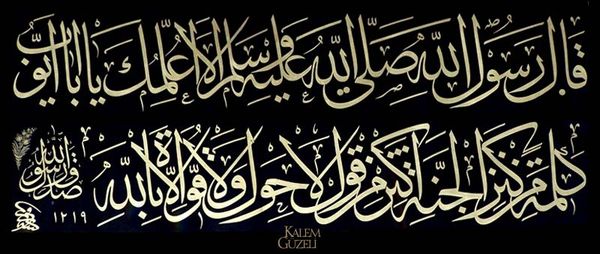 قال رسول الله صلى الله عليه وسلم الا اعلمك يا ابا ايوب
كلمة من كنز الجنة اكثر من قول لا حول ولا قوة الا بالله
صدق رسول الله
١٢١٩
KALEM
GÜZELİ